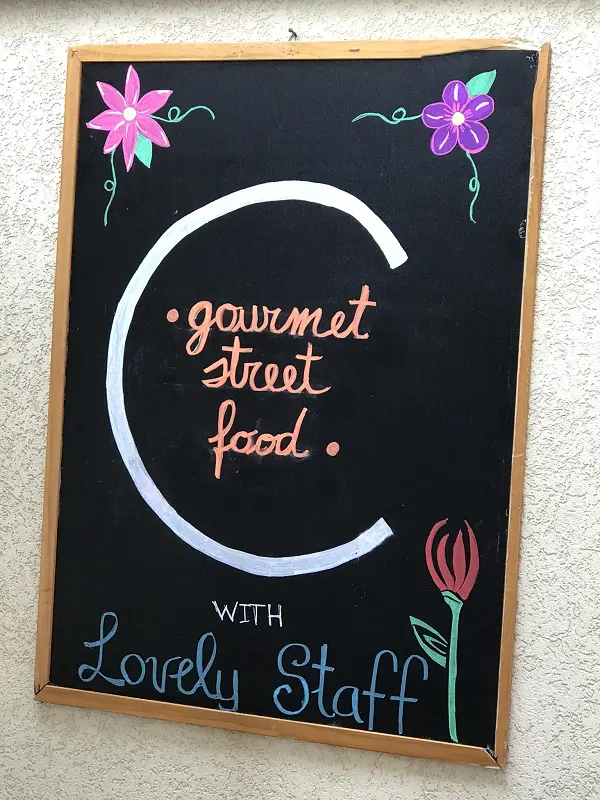 C
• gourmet
street
food •
WITH
Lovely Staff